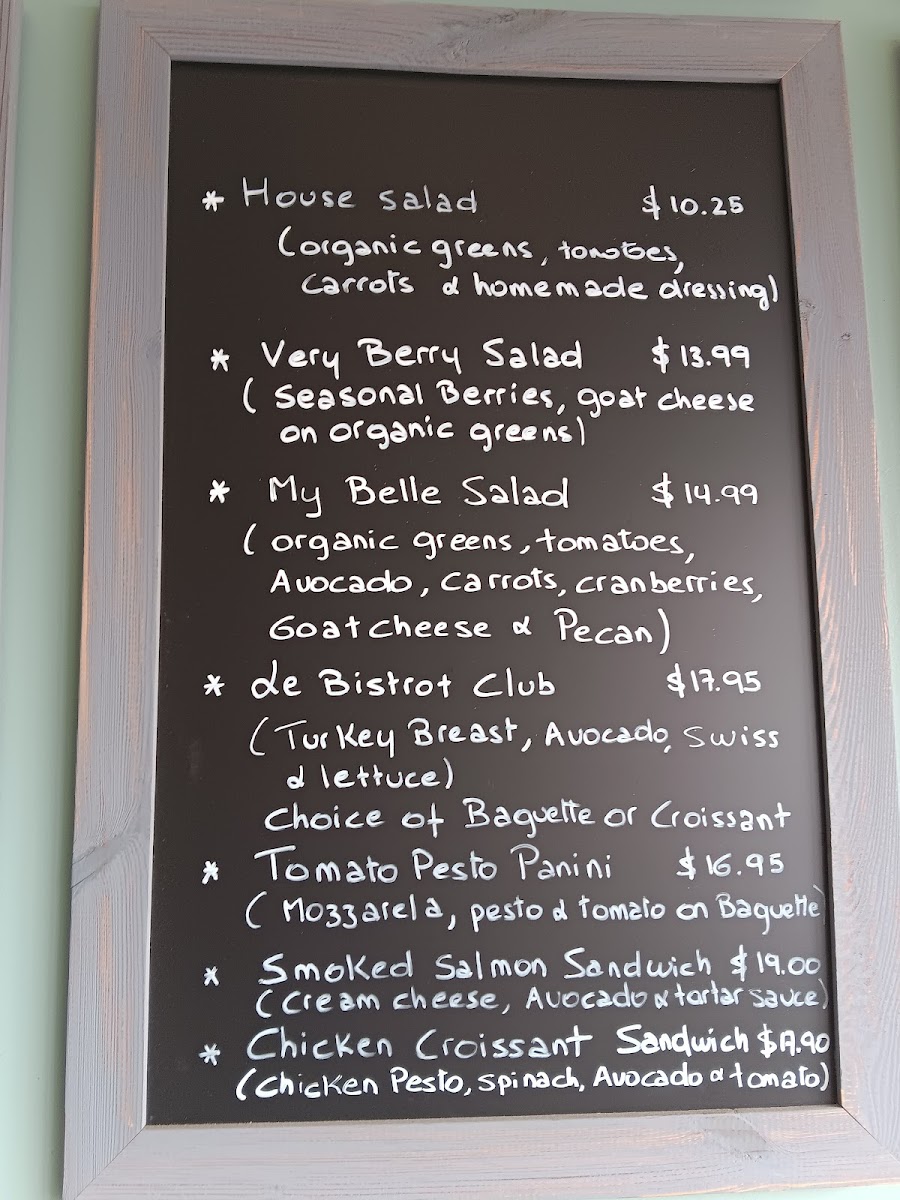 * House Salad $10.25
(organic greens, tomatoes,
carrots & homemade dressing)
* Very Berry Salad $13.99
( Seasonal Berries, goat cheese
on organic greens)
* My Belle Salad $14.99
( organic greens, tomatoes,
Avocado, carrots, cranberries,
Goat cheese & Pecan)
* Le Bistrot Club $17.95
(Turkey Breast, Avocado, Swiss
& lettuce)
Choice of Baguette or Croissant
* Tomato Pesto Panini $16.95
( Mozzarela, pesto & tomato on Baguette)
* Smoked Salmon Sandwich $19.00
(Cream cheese, Avocado & tartar sauce)
* Chicken Croissant Sandwich
(Chicken Pesto, spinach, Avocado & tomato)